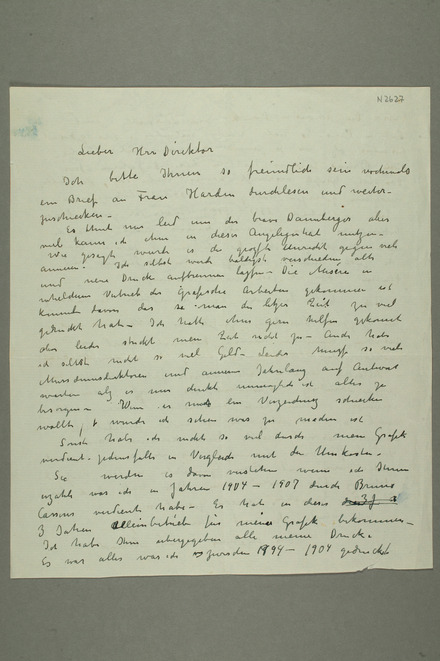 N 2627
Lieber Herr Direktor
Ich bitte Ihnen so freundlich sein nochmals
ein Brief an Frau Harden durchlesen und weiter-
zuschicken.
Es thut uns leid um das brave Dannberger aber
viel kann ich ihm in dieser Angelegenheit nutzen.
Wie gesagt wurde in die große Unrecht gegen mich
Ich selbst werde baldigst verschiedene alte
und neue Drucke lassen. Die Misere in
welchem Vertrieb der Grafische Arbeiten gekommen ist
kommt davon das man die letzte Zeit zu viel
gedruckt hat. Ich hätte ihm gern helfen gekonnt
aber leider steht mein Zeit nicht zu. Auch habe
ich selbst nicht so viel Geld. muss so viele
Museumsdirektoren und Jahrlang auf Antwort
warten als er uns denkt ich alles zu
besorgen. Wenn er ein Verzeichnis schicken
wollte, würde ich sehen was zu machen ist
Sonst habe ich nicht so viel durch mein Grafik
verdient jedenfalls in Vergleich mit den Unkosten.
Sie werden es dann verstehen wenn ich Ihnen
erzähle was ich in Jahren 1904 – 1907 durch Bruno
Cassirer verdient habe. Er hat in diese
3 Jahren Alleinvertrieb für meine Grafik bekommen.
Ich habe Ihm übergegeben alle meine Drucke.
Es war alles was ich zwischen 1894 – 1904 gedruckt